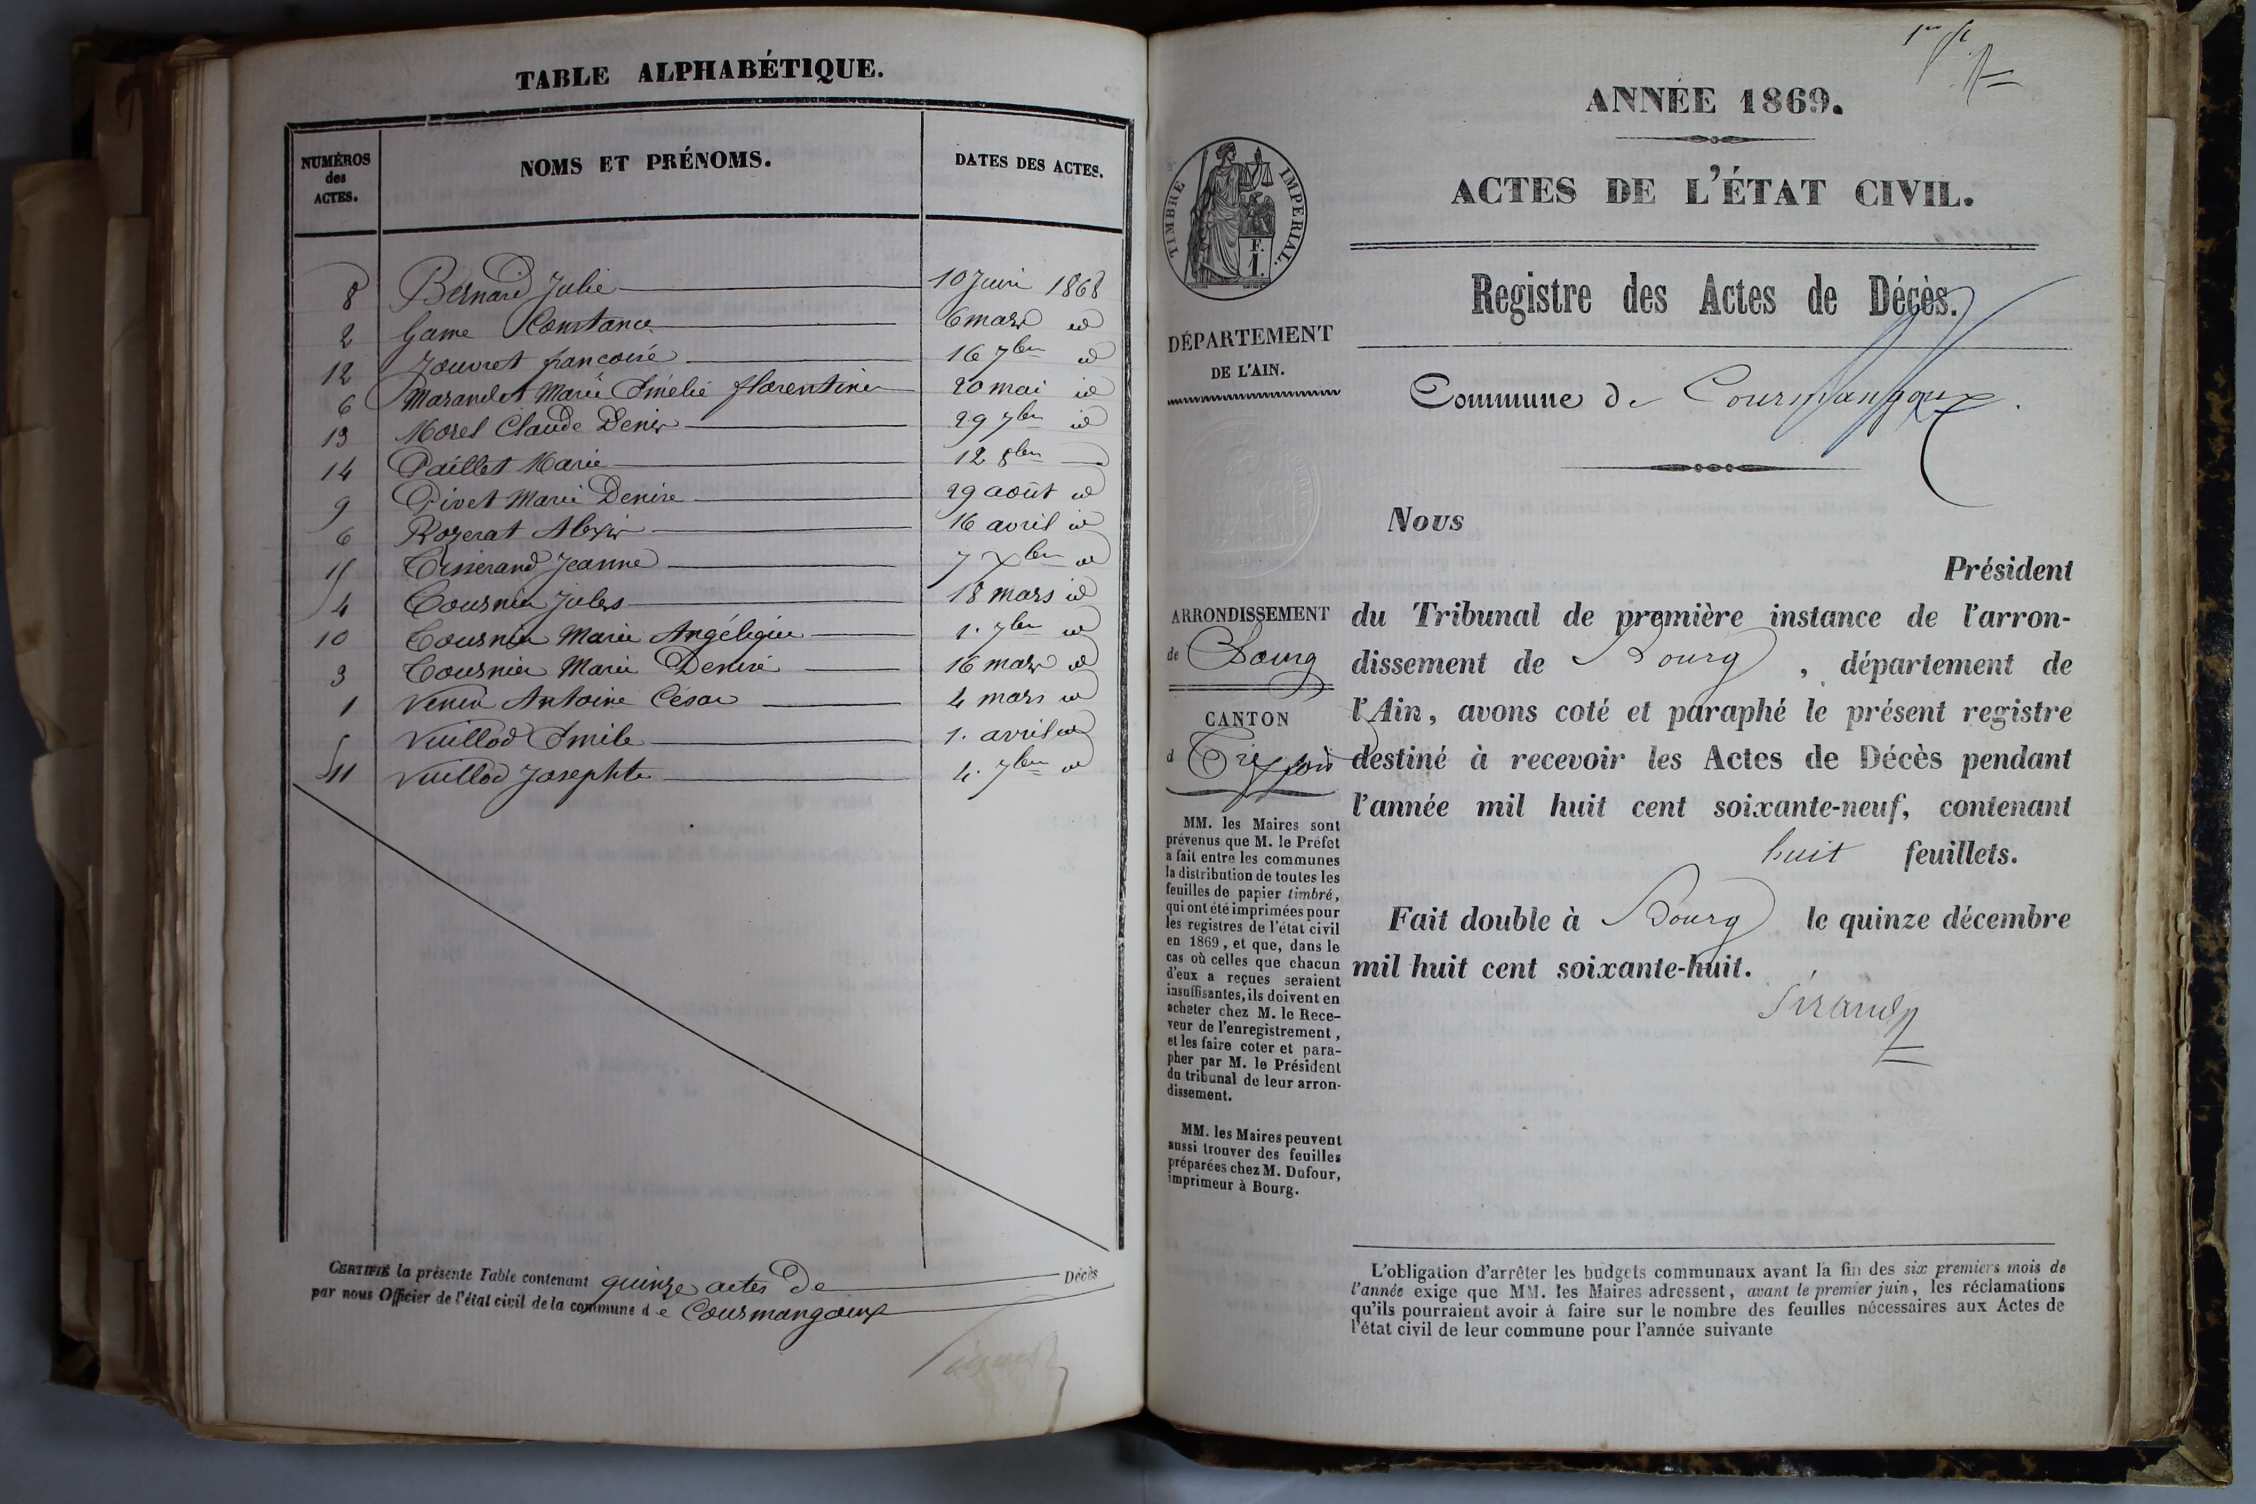 TABLE ALPHABÉTIQUE.
NUMÉROS des ACTES.
NOMS ET PRÉNOMS.
DATES DES ACTES.
8 Bernard Julie 10 Juin 1868
2 Game Constance 6 mars id
12 Jouvret francoise 16 7bre id
6 Marandet Marie Emélie florentine 20 mai id
13 Morel Claude Denis 29 7bre id
14 Paillet Marie 12 8bre
9 Pivet Marie Denise 29 août id
6 Rozerat Alexis 16 avril id
15 Tisserand Jeanne 7 Xbre id
4 Tournier Jules 18 mars id
10 Tournier Marie Angélique 1. 7bre id
3 Tournier Marie Denise 16 mars id
1 Venin Antoine César 4 mars id
5 Vuillod Emile 1. avril id
11 Vuillod Josephte 4. 7bre id
CERTIFIÉ la présente Table contenant quinze actes De Décès
par nous Officier de l'état civil de la commune de Courmangoux
1er f
ANNÉE 1869.
ACTES DE L'ÉTAT CIVIL.
TIMBRE IMPERIAL.
F.
1.
Registre des Actes de Décès.
DÉPARTEMENT
DE L'AIN.
Commune de Courmangoux.
ARRONDISSEMENT
de Bourg
CANTON
d
MM. les Maires sont
prévenus que M. le Préfet
a fait entre les communes
la distribution de toutes les
feuilles de papier timbré,
qui ont été imprimées pour
les registres de l'état civil
en 1869, et que, dans le
cas où celles que chacun
d'eux a reçues seraient
insuffisantes, ils doivent en
acheter chez M. le Rece-
veur de l'enregistrement,
et les faire coter et para-
pher par M. le Président
du tribunal de leur arron-
dissement.
MM. les Maires peuvent
aussi trouver des feuilles
préparées chez M. Dufour,
imprimeur à Bourg.
Nous
Président
du Tribunal de première instance de l'arron-
dissement de Bourg, département de
l'Ain, avons coté et paraphé le présent registre
destiné à recevoir les Actes de Décès pendant
l'année mil huit cent soixante-neuf, contenant
huit feuillets.
Fait double à Bourg le quinze décembre
mil huit cent soixante-huit.
L'obligation d'arrêter les budgets communaux avant la fin des six premiers mois de
l'année exige que MM. les Maires adressent, avant le premier juin, les réclamations
qu'ils pourraient avoir à faire sur le nombre des feuilles nécessaires aux Actes de
l'état civil de leur commune pour l'année suivante